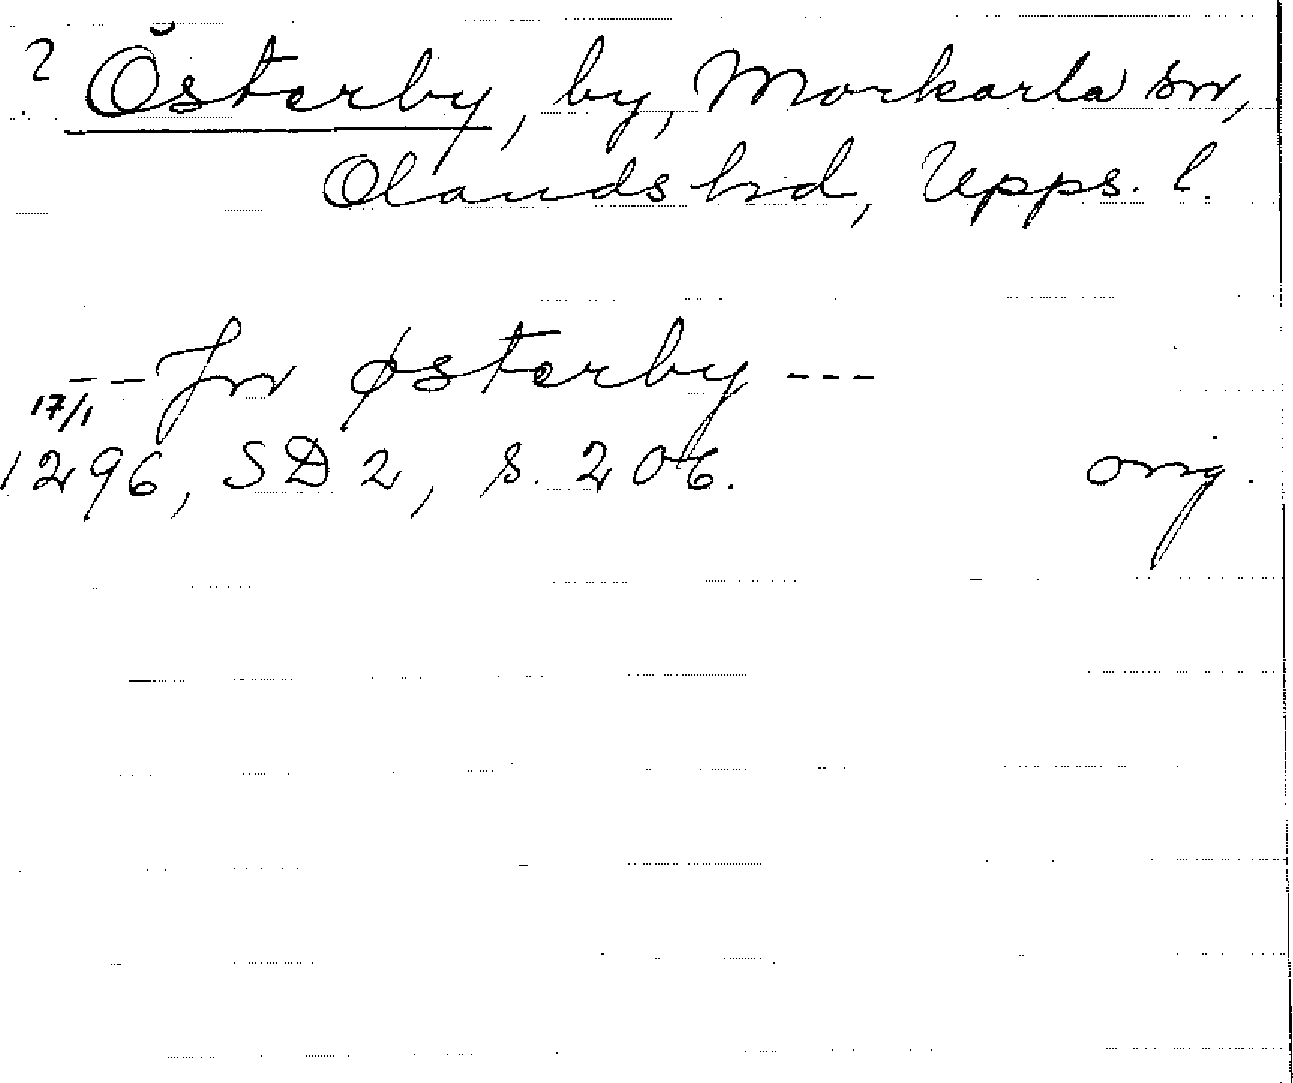 ? Österby, by, Morkarla sn,
Olands hd, Upps. l.
-- Jn østerby ---
17/1
1296, SD 2, s. 206. orig.